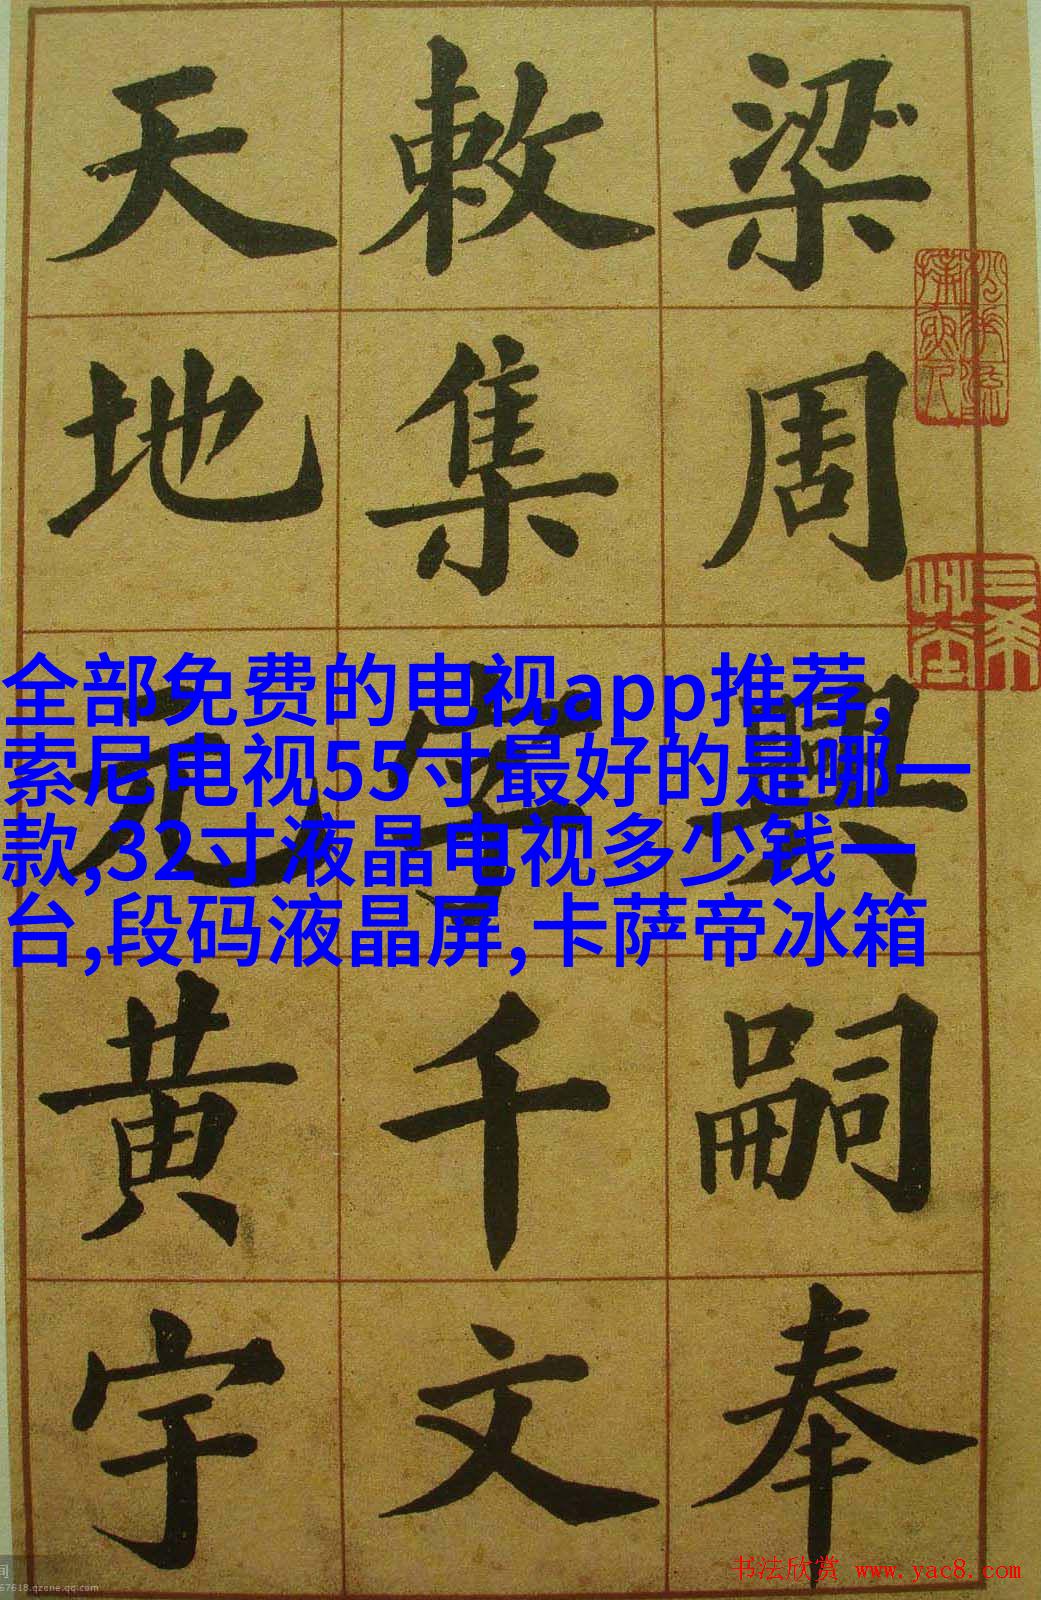 梁周興嗣奉
敕集字千文
天地元黄宇
全部免费的电视app推荐,
索尼电视55寸最好的是哪一
款,32寸液晶电视多少钱一
台,段码液晶屏,卡萨帝冰箱
书法欣赏 www.yac8.com
67618.qzone.qq.com